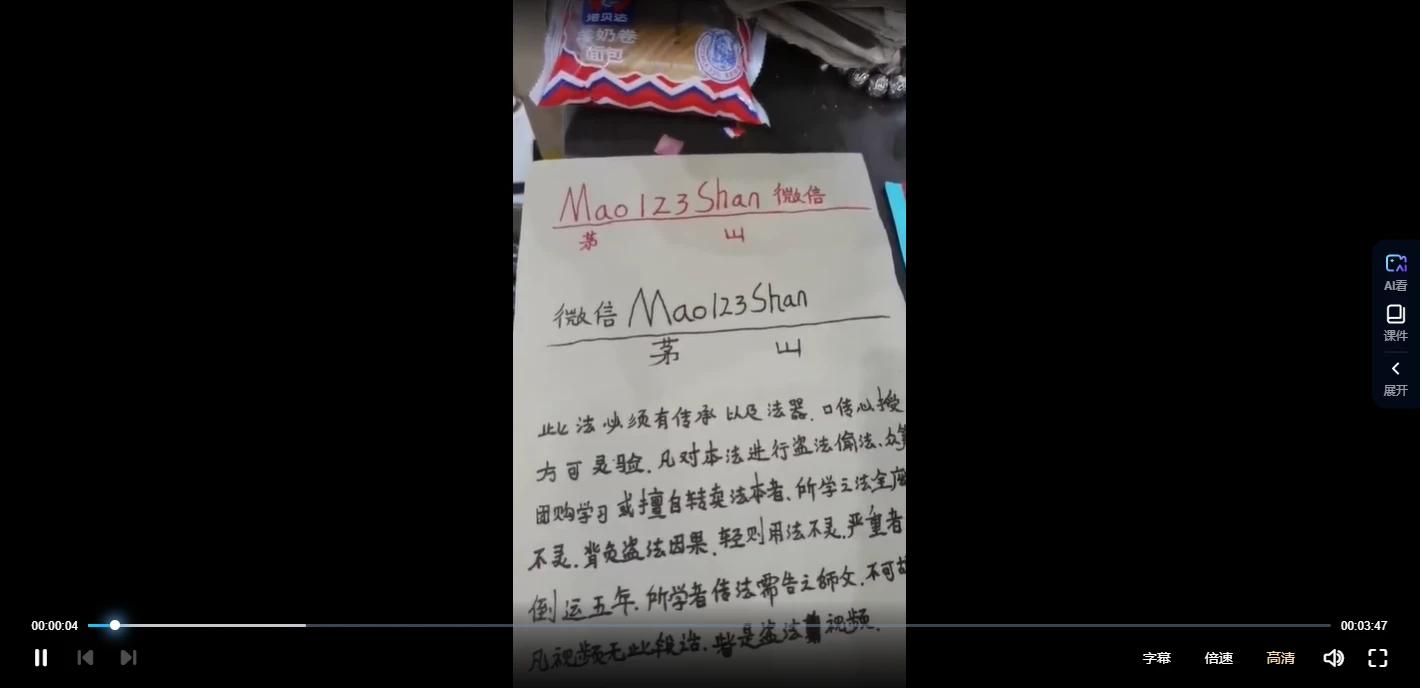 诺贝达
羊奶卷
面包
Mao123Shan 微信
茅 山
微信 Mao123Shan
茅 山
此法必须有传承以及法器.口传心授
方可灵验.凡对本法进行盗法偷法、众筹
团购学习或擅自转卖法本者、所学之法全
不灵.背负盗法因果.轻则用法不灵.严重者
倒运五年.所学者传法需告之師父.不可
凡视频无此段话.皆是盗法 视频.
AI看
课件
展开
00:00:04
00:03:47
字幕 倍速 高清